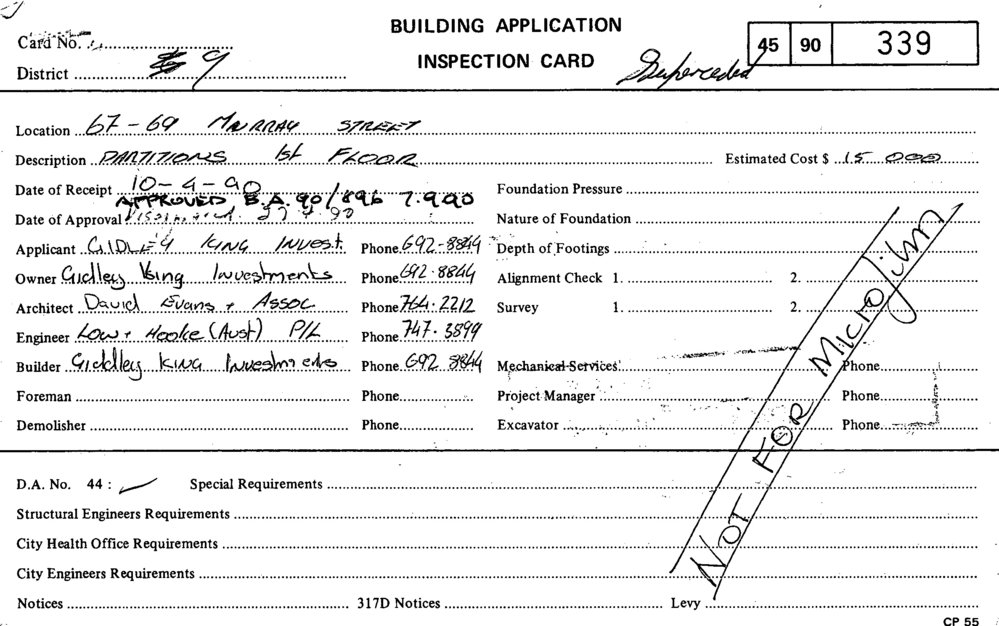 BUILDING APPLICATION
INSPECTION CARD
Card No.
District 9
Superceded
45 90 339
Location 67-69 MURRAY STREET
Description PARTITIONS 1st FLOOR Estimated Cost $ 15 000
Date of Receipt 10-4-90 Foundation Pressure
APPROVED B.A. 90/896 7.9.90
Date of Approval 27 4 90 Nature of Foundation
Applicant GIDLEY KING INVEST. Phone 692-8844 Depth of Footings
Owner Gidley King Investments Phone 692.8844 Alignment Check 1. 2.
Architect David Evans + Assoc Phone 764.2212 Survey 1. 2.
Engineer Low + Hooke (Aust) P/L Phone 747.3899
Builder Giddley King Investments Phone 692 8844 Mechanical Services Phone
Foreman Phone Project Manager Phone
Demolisher Phone Excavator Phone
NOT FOR MICROfilm
D.A. No. 44 : Special Requirements
Structural Engineers Requirements
City Health Office Requirements
City Engineers Requirements
Notices 317D Notices Levy
CP 55